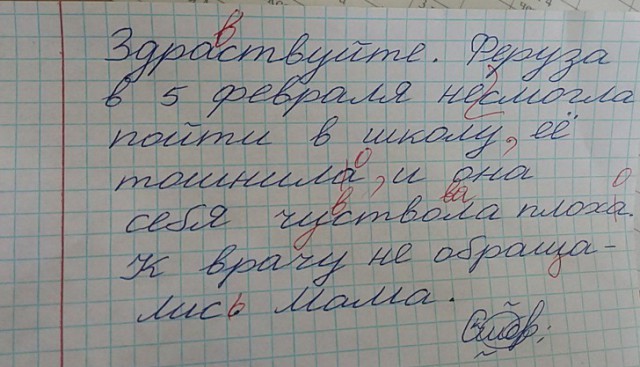 в
Здраствуйте. Феруза
в 5 февраля несмогла
пойти в школу, её
о
тошнила, и она
в ва о
себя чуствола плоха.
К врачу не обраща-
лись Мама.